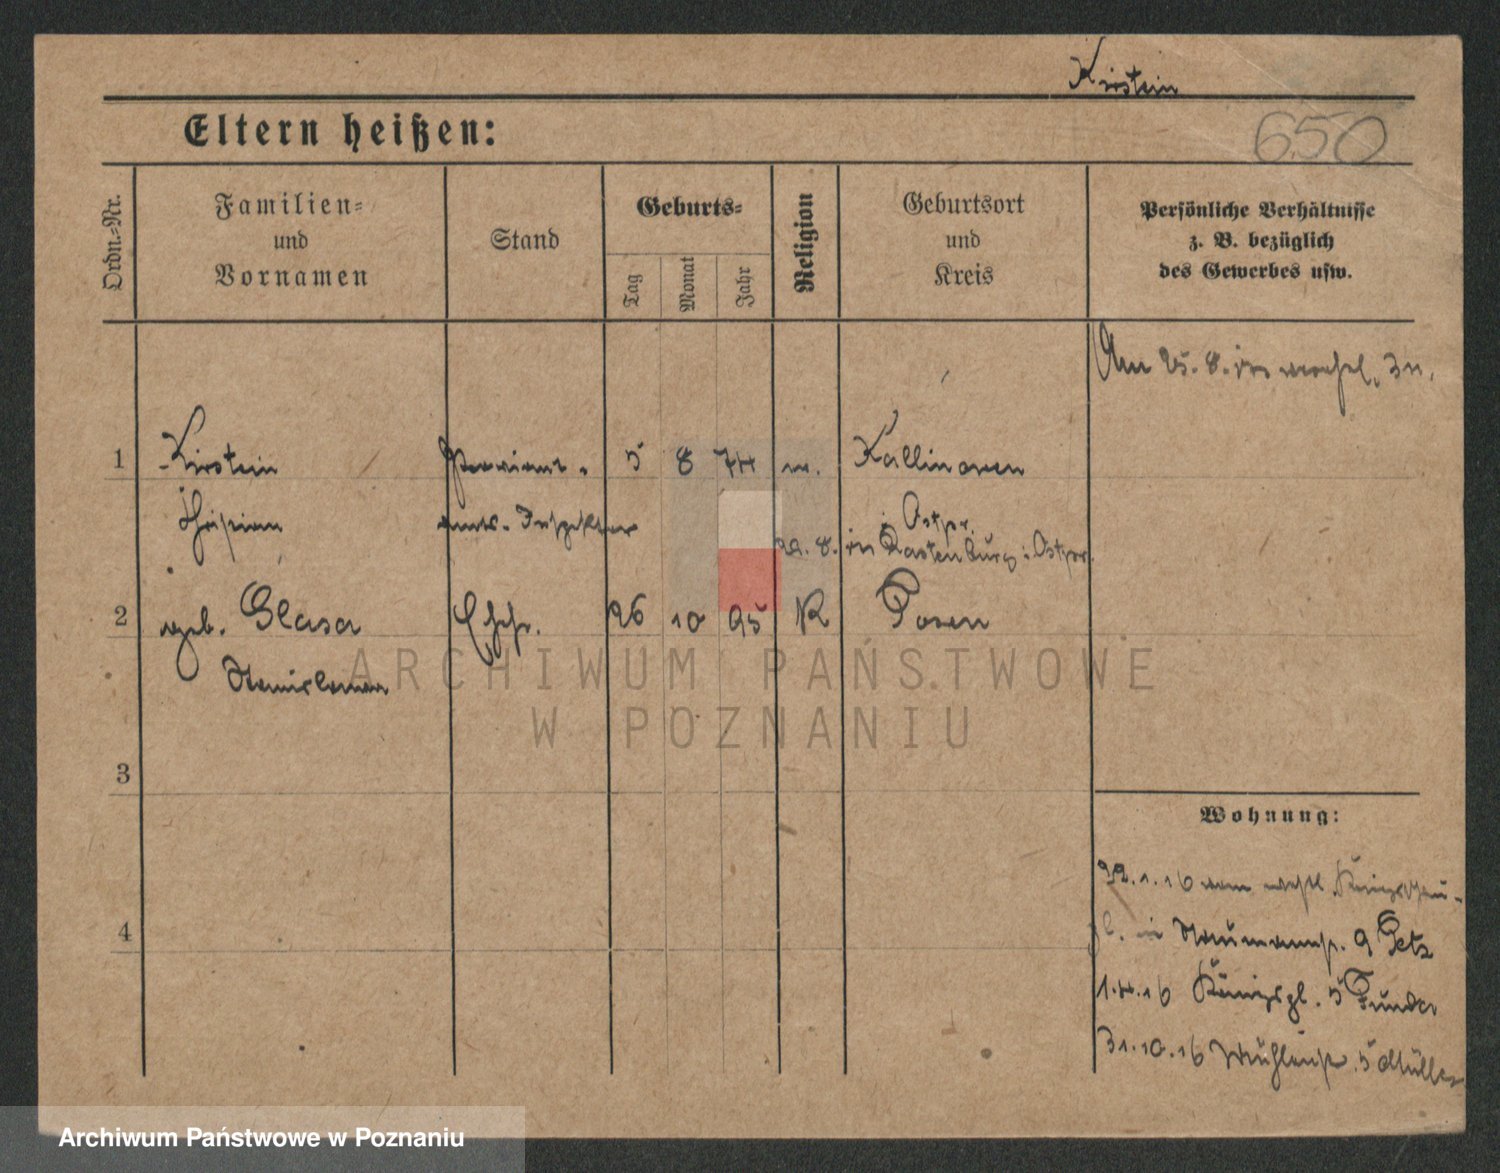 Kirstein
Eltern heißen:
650
Ordn.-Nr.
Familien-
und
Vornamen
Stand
Geburts-
Tag
Monat
Jahr
Religion
Geburtsort
und
Kreis
Persönliche Verhältnisse
z. B. bezüglich
des Gewerbes usw.
Am 25. 8.
1 Kirstein 5 8 74 Kallinowen
amts-Inspektor i. Ostpr.
22. 8. in Rastenburg i. Ostpr.
2 geb. Glasa Ehefr. 26 10 95 K Posen
Stanislawa
ARCHIWUM PAŃSTWOWE
W POZNANIU
3
Wohnung:
22.1.16
4
in Naumannstr. 9 Petz
1.4.16 Königspl. 5
31.10.16 Mühlenstr. 5 Müller
Archiwum Państwowe w Poznaniu